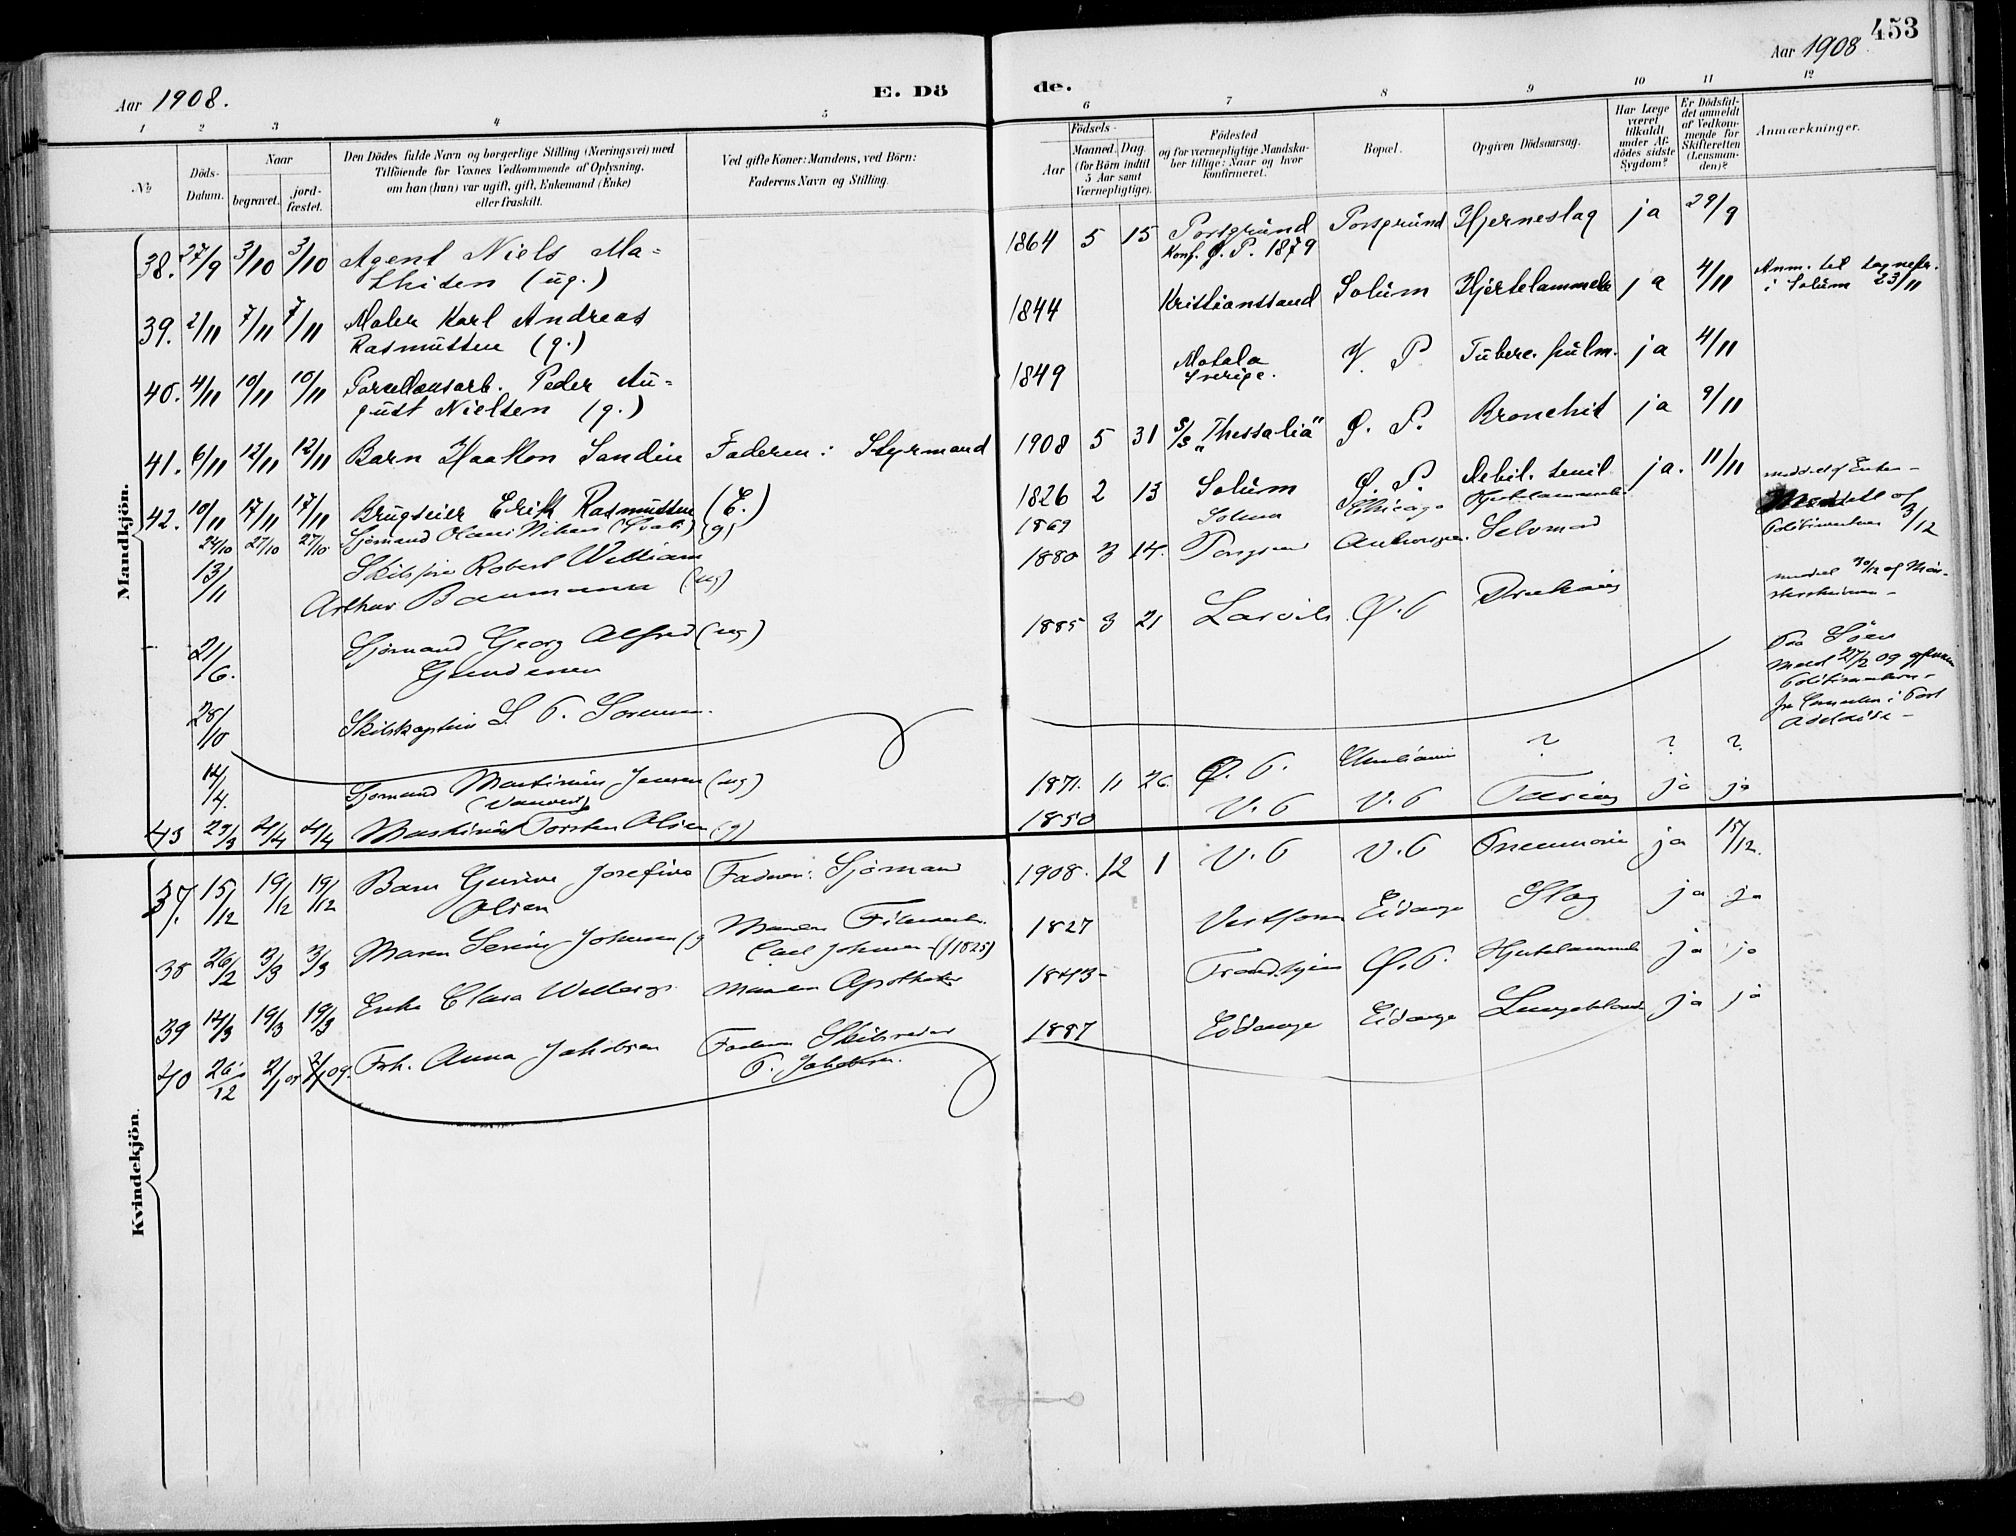 453
Aar 1908.
E. Dö
de.
Aar 1908
1 2 3 4 5 6 7 8 9 10 11 12
№
Döds-
Datum.
Naar
begravet.
jord-
fæstet.
Den Dödes fulde Navn og borgerlige Stilling (Næringsvei) med
Tilföiende for Voxnes Vedkommende af Oplysning,
om han (hun) var ugift, gift, Enkemand (Enke)
eller fraskilt.
Ved gifte Koner: Mandens, ved Börn:
Faderens Navn og Stilling.
Födsels-
Aar
Maaned. Dag.
(for Börn indtil
5 Aar samt
Værnepligtige).
Födested
og for værnepligtige Mandska-
ber tillige: Naar og hvor
konfirmeret.
Bopæl.
Opgiven Dödsaarsag.
Har Læge
været
tilkaldt
under Af-
dødes sidste
Sygdom?
Er Dödsfal-
det anmeldt
af Vedkom-
mende for
Skifteretten
(Lensman-
den)?
Anmærkninger.
Mandkjön.
38. 27/9 3/10 3/10 Agent Niels Ma-
thisen (ug.)
1864 5 15 Porsgrund Porsgrund Hjerneslag ja 29/9
Konf. Ø. P. 1879
39. 2/11 7/11 7/11 Maler Karl Andreas
Rasmussen (g.)
1844 Kristianssand Solum Hjertelammelse ja 4/11 Anm. til sognepr.
i Solum 23/11
40. 4/11 10/11 10/11 Porcellænsarb. Peder Au-
gust Nielsen (g.)
1849 Motala V. P. Tuberc. pulm. ja 4/11
Sverige.
41. 6/11 12/11 12/11 Barn Haakon Sandin Faderen: Styrmand
1908 5 31 S/S "Thessalia" Ø. P. Bronchit ja 9/11
42. 10/11 17/11 17/11 Brugseier Erik Rasmussen (E.)
1826 2 13 Solum Ø. P. Debil. senil ja. 11/11
24/10 27/10 27/10 Sjømand Olaus Nilsen (g)
1869 Solum Chicago Hjertelammelse
13/11 Robert William
Arthur Baumann (ug)
1880 3 14. Porsgrund Selvmord Meddelt af
Politimesteren 3/12
21/6. Sjømand Georg Alfred (ug)
Gundersen
1885 3 21 Larvik Ø. P
28/10 Skibskaptein S. P. Sørensen.
Paa Søen
14/4. Sjømand Jensen (ug)
1871. 11 26. Ø. P. ? ? ?
43 29/3 4/4 4/4 Maskinist Torsten Olsen (g)
1850 V. P V. P ja ja
Kvindekjön.
37. 15/12 19/12 19/12 Barn Josefine Faderen: Sjömand
Olsen
1908. 12 1 V. P V. P Pneumoni ja 15/12.
38 26/2 3/3 3/3 Maren Johnsen (g Manden
Carl Johnsen (1825)
1827 Eidanger Slag ja ja
39 14/3 19/3 19/3 Enke Clara Manden Apotheker
1843- Trondhjem Ø. P. Hjertelammelse ja ja
40 26/12 2/1 09 2/1 09. Frk. Anna Jakobsen Faderen Skibsreder
P. Jakobsen.
1887 Eidanger Eidanger ja ja